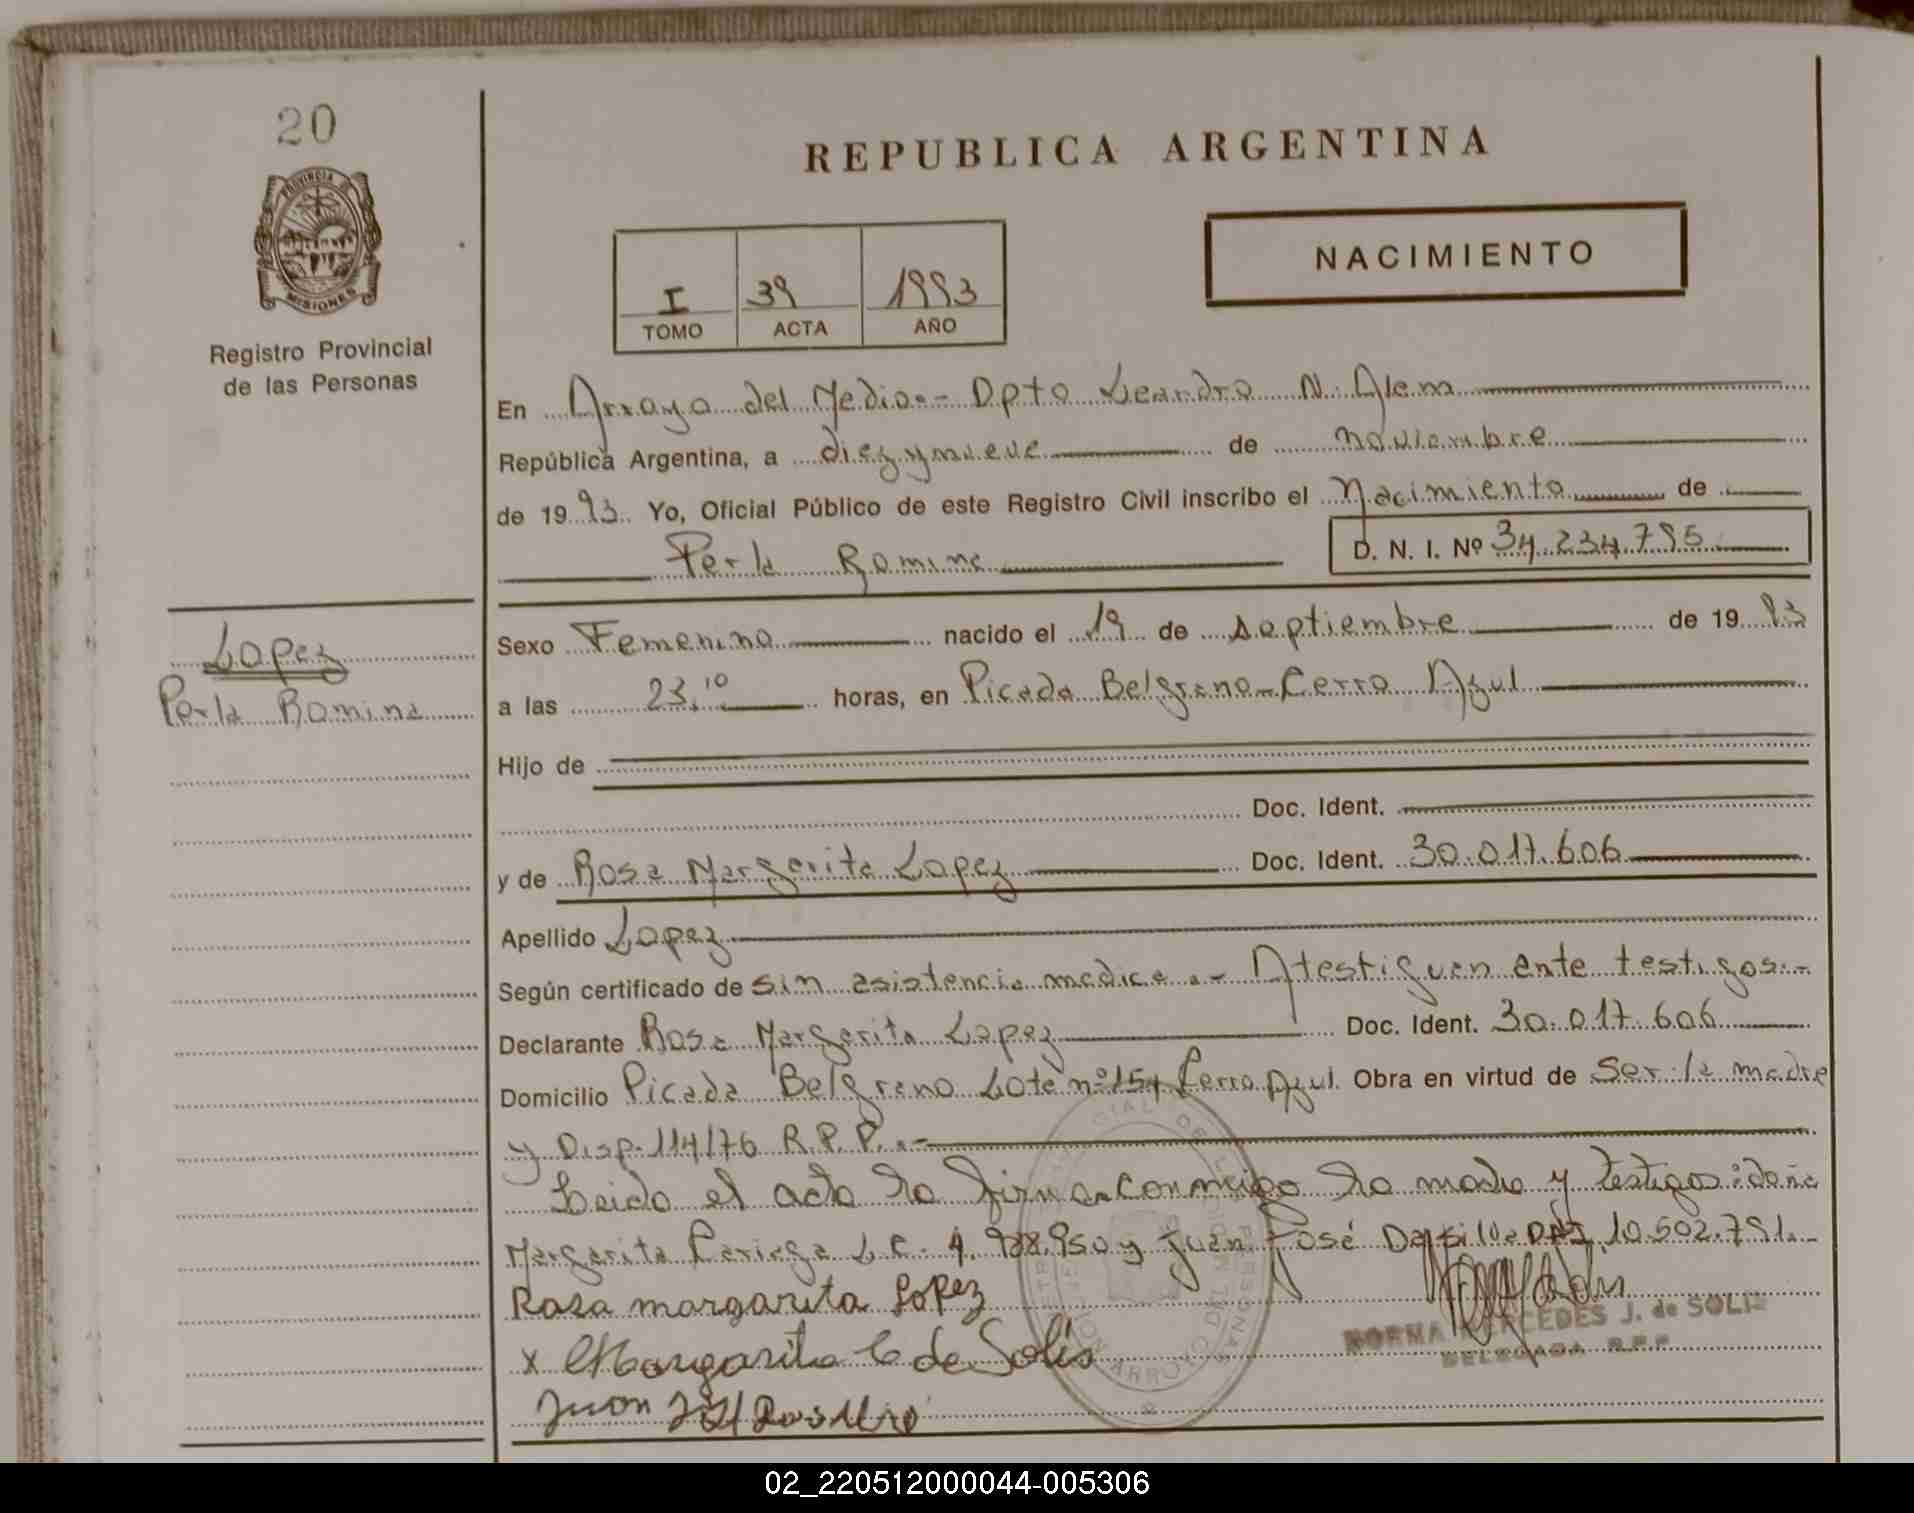 20
PROVINCIA DE
MISIONES
Registro Provincial
de las Personas
REPUBLICA ARGENTINA
NACIMIENTO
I 39 1993
TOMO ACTA AÑO
En Arroyo del Medio.- Dpto Leandro N. Alem
República Argentina, a diezynueve de noviembre
de 1993. Yo, Oficial Público de este Registro Civil inscribo el Nacimiento de
Perla Romina D. N. I. Nº 34.234.795
Lopez
Perla Romina
Sexo Femenino nacido el 19 de septiembre de 1993
a las 23,10 horas, en Picada Belgrano-Cerro Azul
Hijo de
Doc. Ident.
y de Rosa Margarita Lopez Doc. Ident. 30.017.606
Apellido Lopez
Según certificado de sin asistencia medica.- Atestiguan ante testigos.-
Declarante Rosa Margarita Lopez Doc. Ident. 30.017.606
Domicilio Picada Belgrano Lote nº 154 Cerro Azul. Obra en virtud de ser la madre
y Disp. 114/76 R.P.P..-
Leido el acta la firman conmigo la madre y testigos: doña
Margarita L.C. 4. y Juan José DNI 10.502.791.-
Rosa margarita Lopez
x Margarita C de Solis
Juan
NORMA MERCEDES J. de SOLIS
DELEGADA R.P.P.
02_220512000044-005306